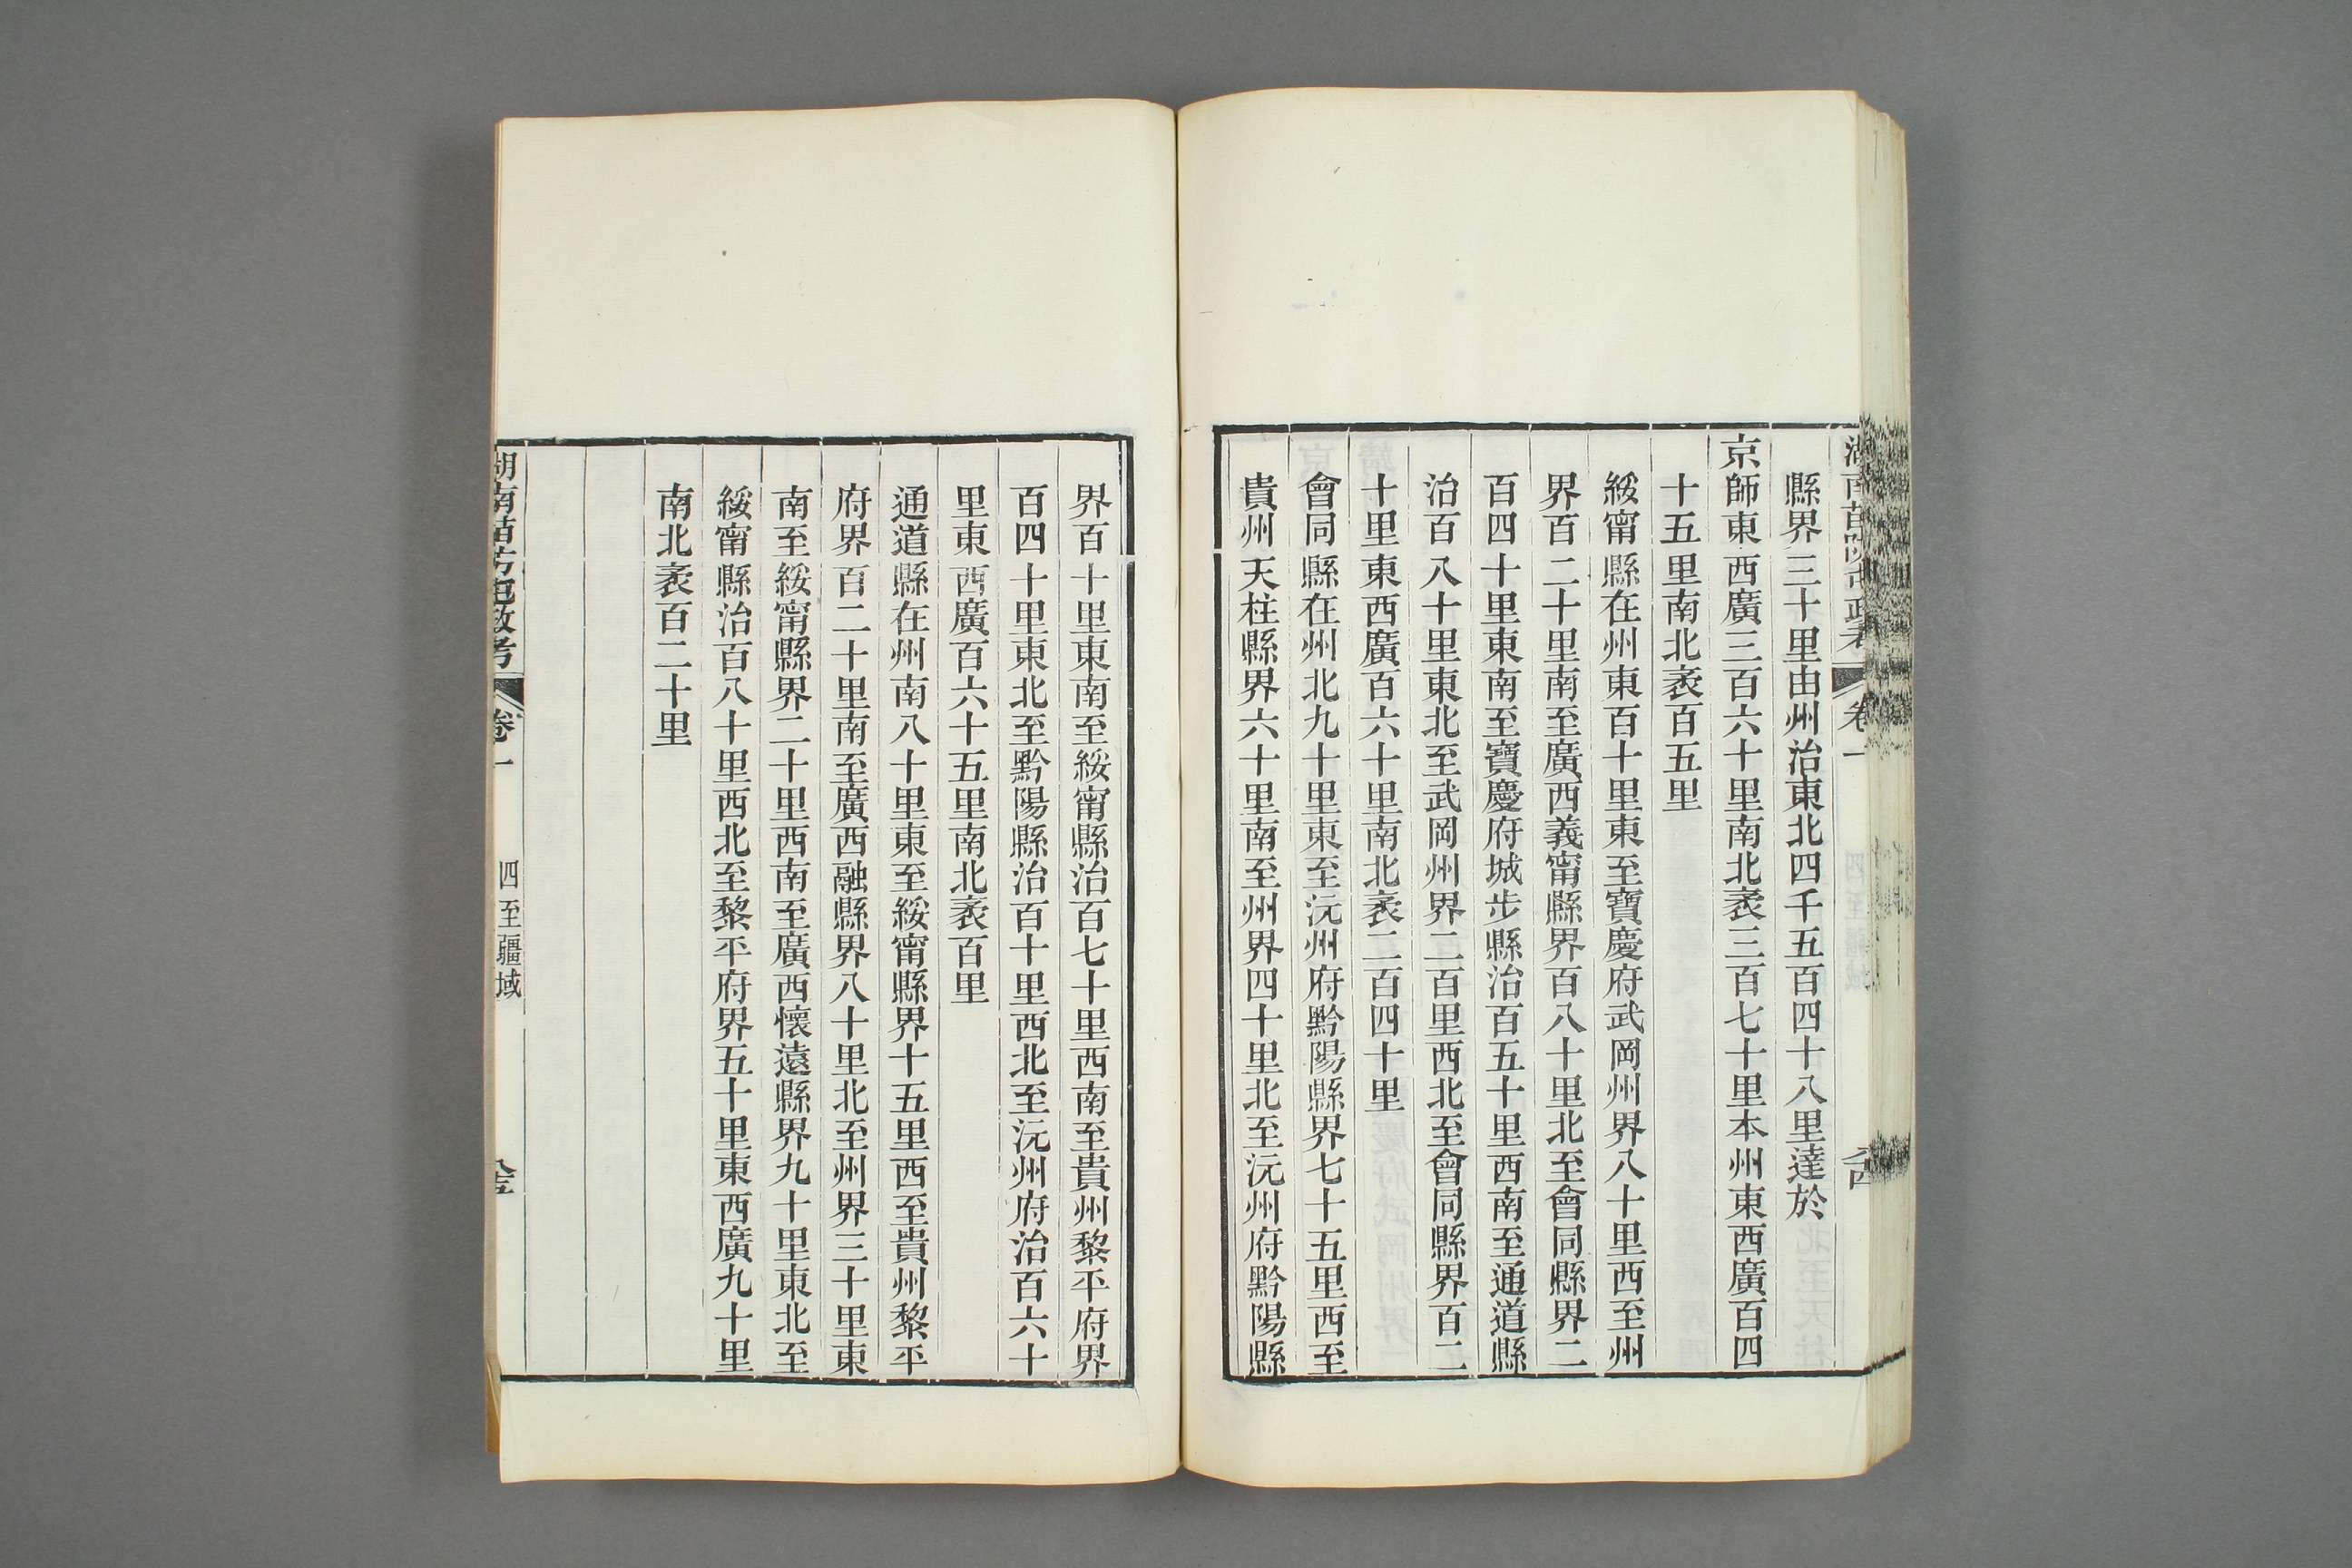 縣界三十里由州治東北四千五百四十八里達於
京師東西廣三百六十里南北袤三百七十里本州東西廣百四
十五里南北袤百五里
綏甯縣在州東百十里東至寶慶府武岡州界八十里西至州
界百二十里南至廣西義甯縣界百八十里北至會同縣界二
百四十里東南至寶慶府城步縣治百五十里西南至通道縣
治百八十里東北至武岡州界二百里西北至會同縣界百二
十里東西廣百六十里南北袤二百四十里
會同縣在州北九十里東至沅州府黔陽縣界七十五里西至
貴州天柱縣界六十里南至州界四十里北至沅州府黔陽縣
界百十里東南至綏甯縣治百七十里西南至貴州黎平府界
百四十里東北至黔陽縣治百十里西北至沅州府治百六十
里東西廣百六十五里南北袤百里
通道縣在州南八十里東至綏甯縣界十五里西至貴州黎平
府界百二十里南至廣西融縣界八十里北至州界三十里東
南至綏甯縣界二十里西南至廣西懷遠縣界九十里東北至
綏甯縣治百八十里西北至黎平府界五十里東西廣九十里
南北袤百二十里
湖南苗防屯政考 卷一 四至疆域